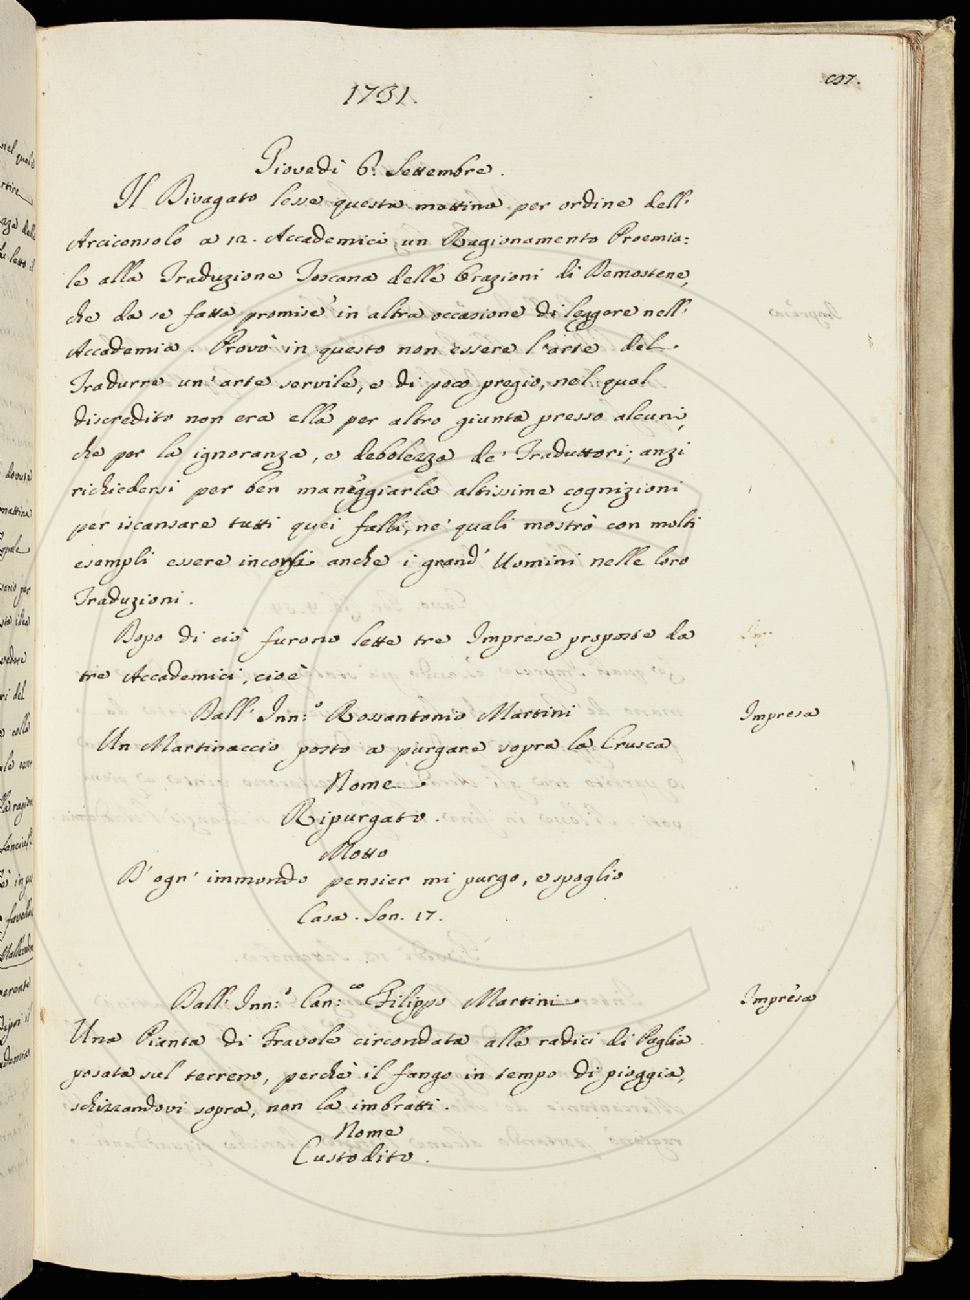 1731.
Giovedì 6. Settembre.
Il Divagato lesse questa mattina per ordine dell'
Arciconsolo a 12. Accademici, un Ragionamento Proemia=
le alla Traduzione Toscana delle Orazioni di Demostene,
che da se fatta promise in altra occasione di leggere nell'
Accademia. Provò in questo non essere l'arte del
Tradurre un'arte servile, e di poco pregio, nel qual
discredito non era ella per altro giunta presso alcuni,
che per la ignoranza, e debolezza de' Traduttori; anzi
richiedersi per ben maneggiarla altissime cognizioni
per iscansare tutti quei falli, ne' quali mostrò con molti
esempli essere incorsi anche i grand' Uomini nelle loro
Traduzioni.
Dopo di ciò furono lette tre Imprese proposte da
tre Accademici, cioè
Dall' Inn:º Rossantonio Martini
Impresa
Un Martinaccio posto a purgare sopra la Crusca
Nome
Ripurgato.
Motto
D'ogn' immondo pensier mi purgo, e spoglio
Casa. Son. 17.
Dall' Inn: Can:co Filippo Martini
Impresa
Una Pianta di Fravole circondata alle radici di Paglia
posata sul terreno, perchè il fango in tempo di pioggia,
schizzandovi sopra, non la imbratti.
Nome
Custodito.